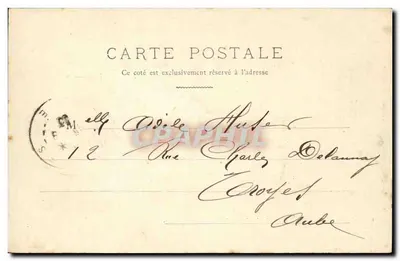 CARTE POSTALE
Ce coté est exclusivement réservé à l'adresse
elle Adèle
12 Rue Charles Delaunay
Troyes
Aube
CPAPHIL